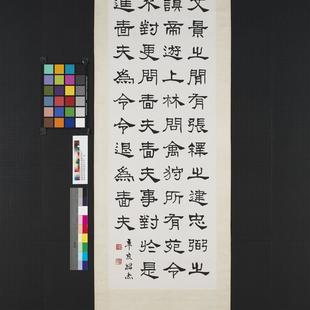 文景之間有張釋之建忠弼之
謨帝遊上林問禽狩所有苑令
不對更問嗇夫嗇夫事對於是
進嗇夫為令令退為嗇夫